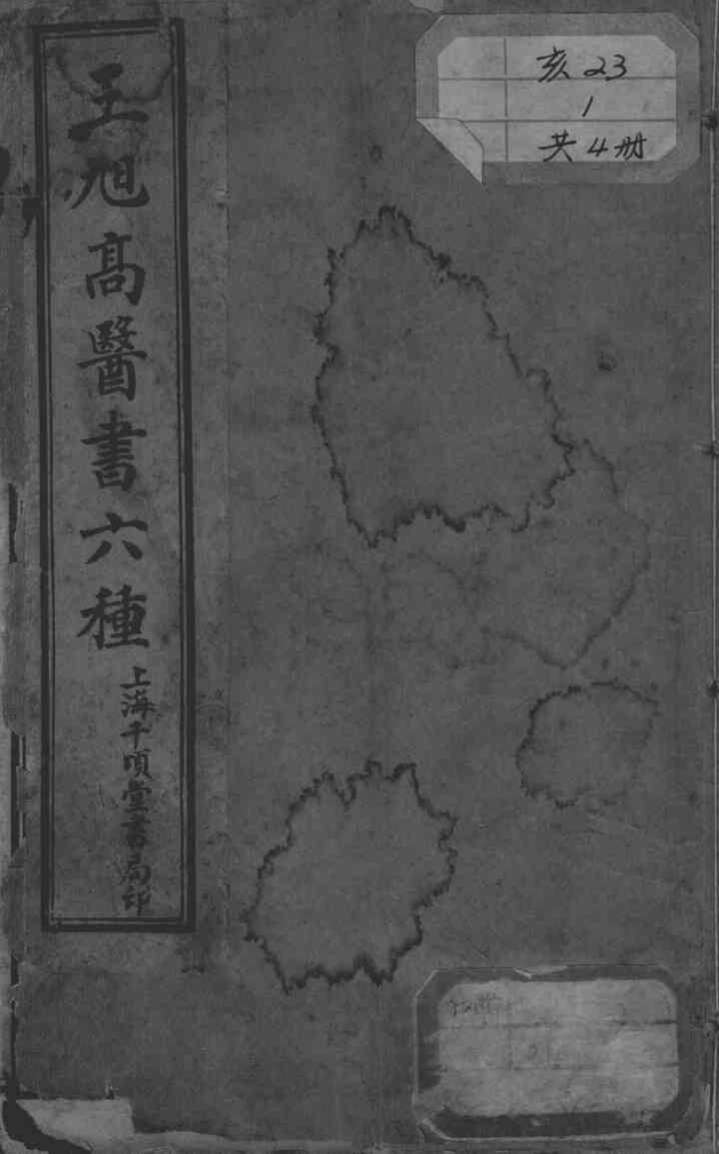 王旭高醫書六種
上海千頃堂書局印
亥23
1
共4册